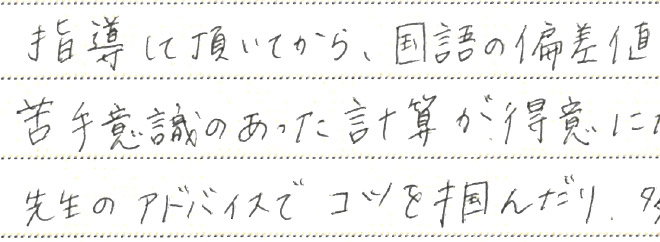 指導して頂いてから、国語の偏差値
苦手意識のあった計算が、得意に
先生のアドバイスでコツを掴んだり、